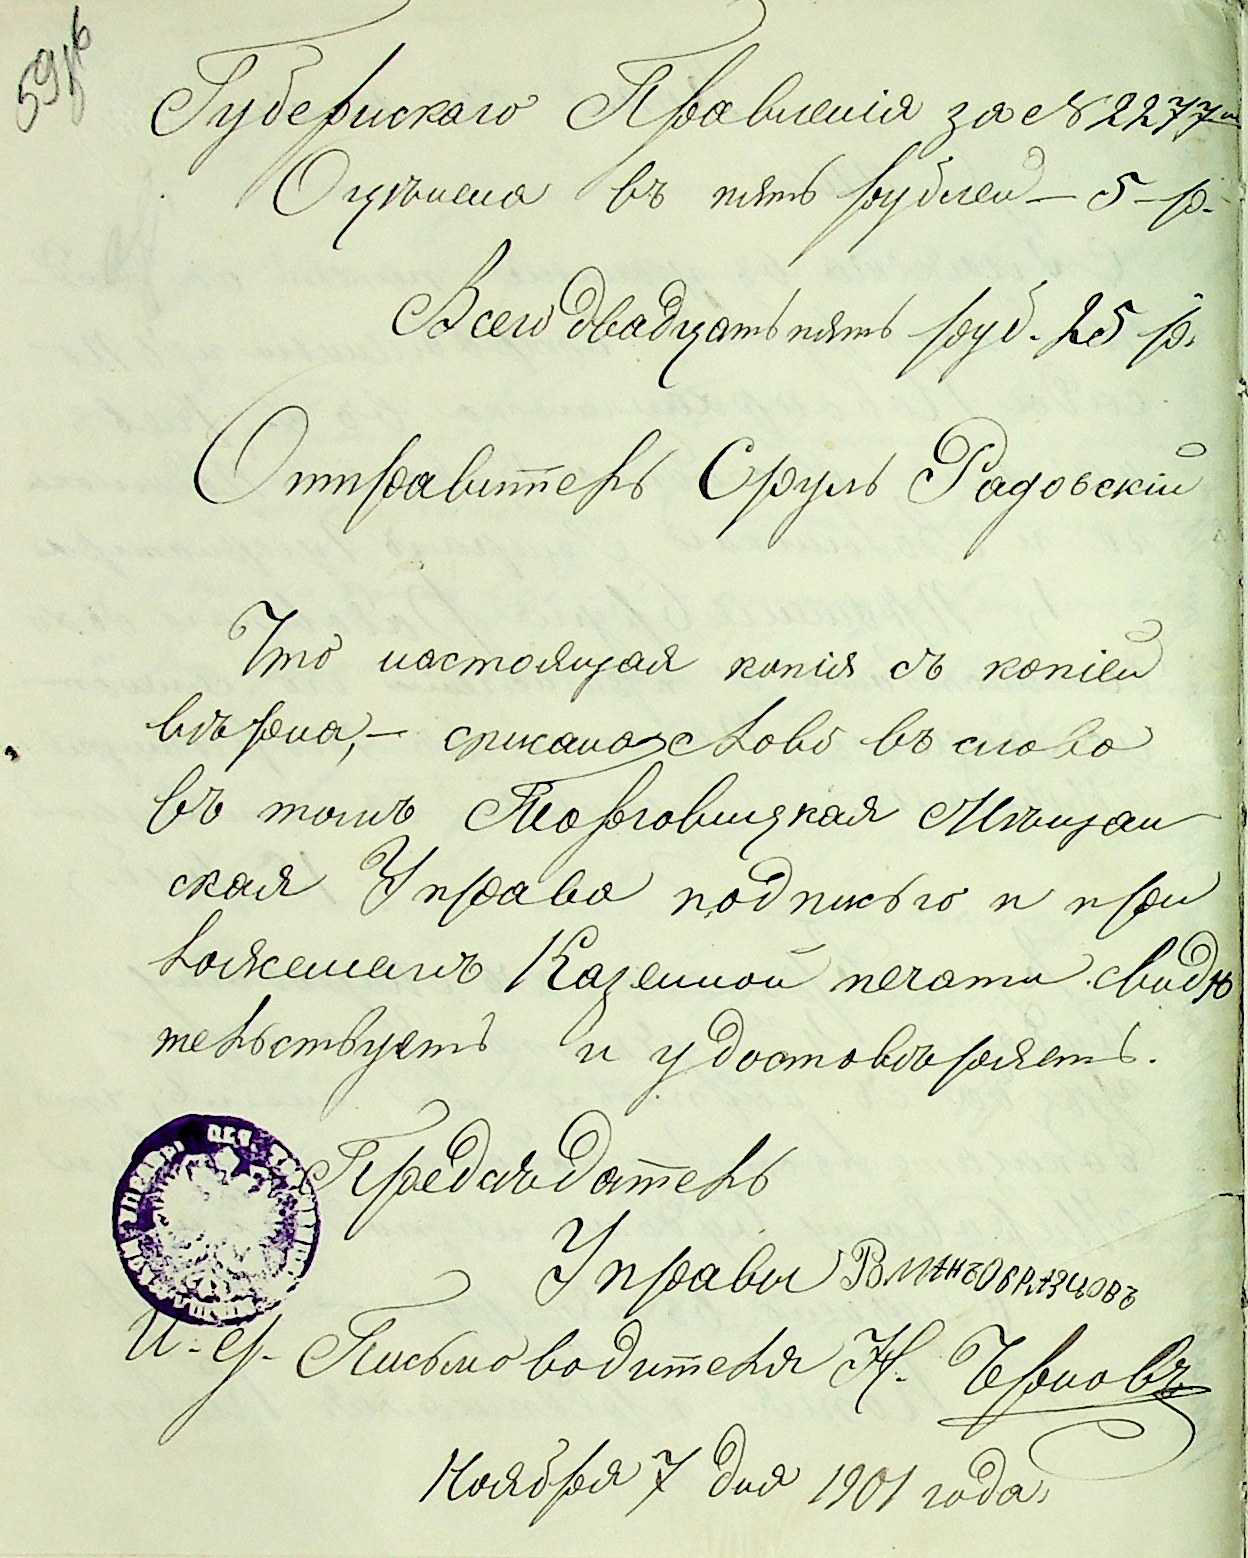 59 об
Губернскаго Правленія за № 2277м
Оцѣнена въ пять рублей — 5 — р.
Всего двадцать пять руб. 25 р.
Отправитель Сруль Радовскій
Что настоящая копія съ копіей
вѣрна, — списана слово въ слово
въ томъ Торговицкая Мѣщан
ская Управа подписью и при
ложеніемъ Казенной печати свидѣ
тельствуетъ и удостовѣряетъ.
Предсѣдатель
Управы
И. д. Письмоводителя Н. Черновъ
Ноября 7 дня 1901 года.